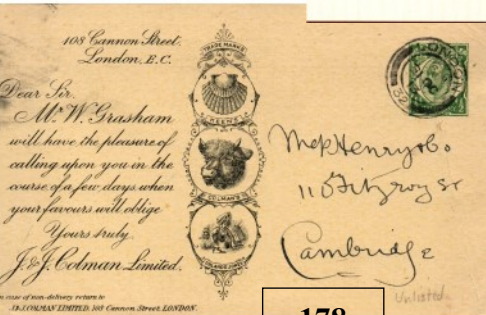 108 Cannon Street,
London, E.C.
Dear Sir,
Mr. W. Grasham
will have the pleasure of
calling upon you in the
course of a few days when
your favours will oblige
Yours truly
J. & J. Colman Limited.
In case of non-delivery return to
J. & J. COLMAN LIMITED, 108 Cannon Street, LONDON.
TRADE MARKS
KEEN'S
COLMAN'S
LONDON
32
Henry & Co
11 Fitzroy St
Cambridge
Unlisted
178